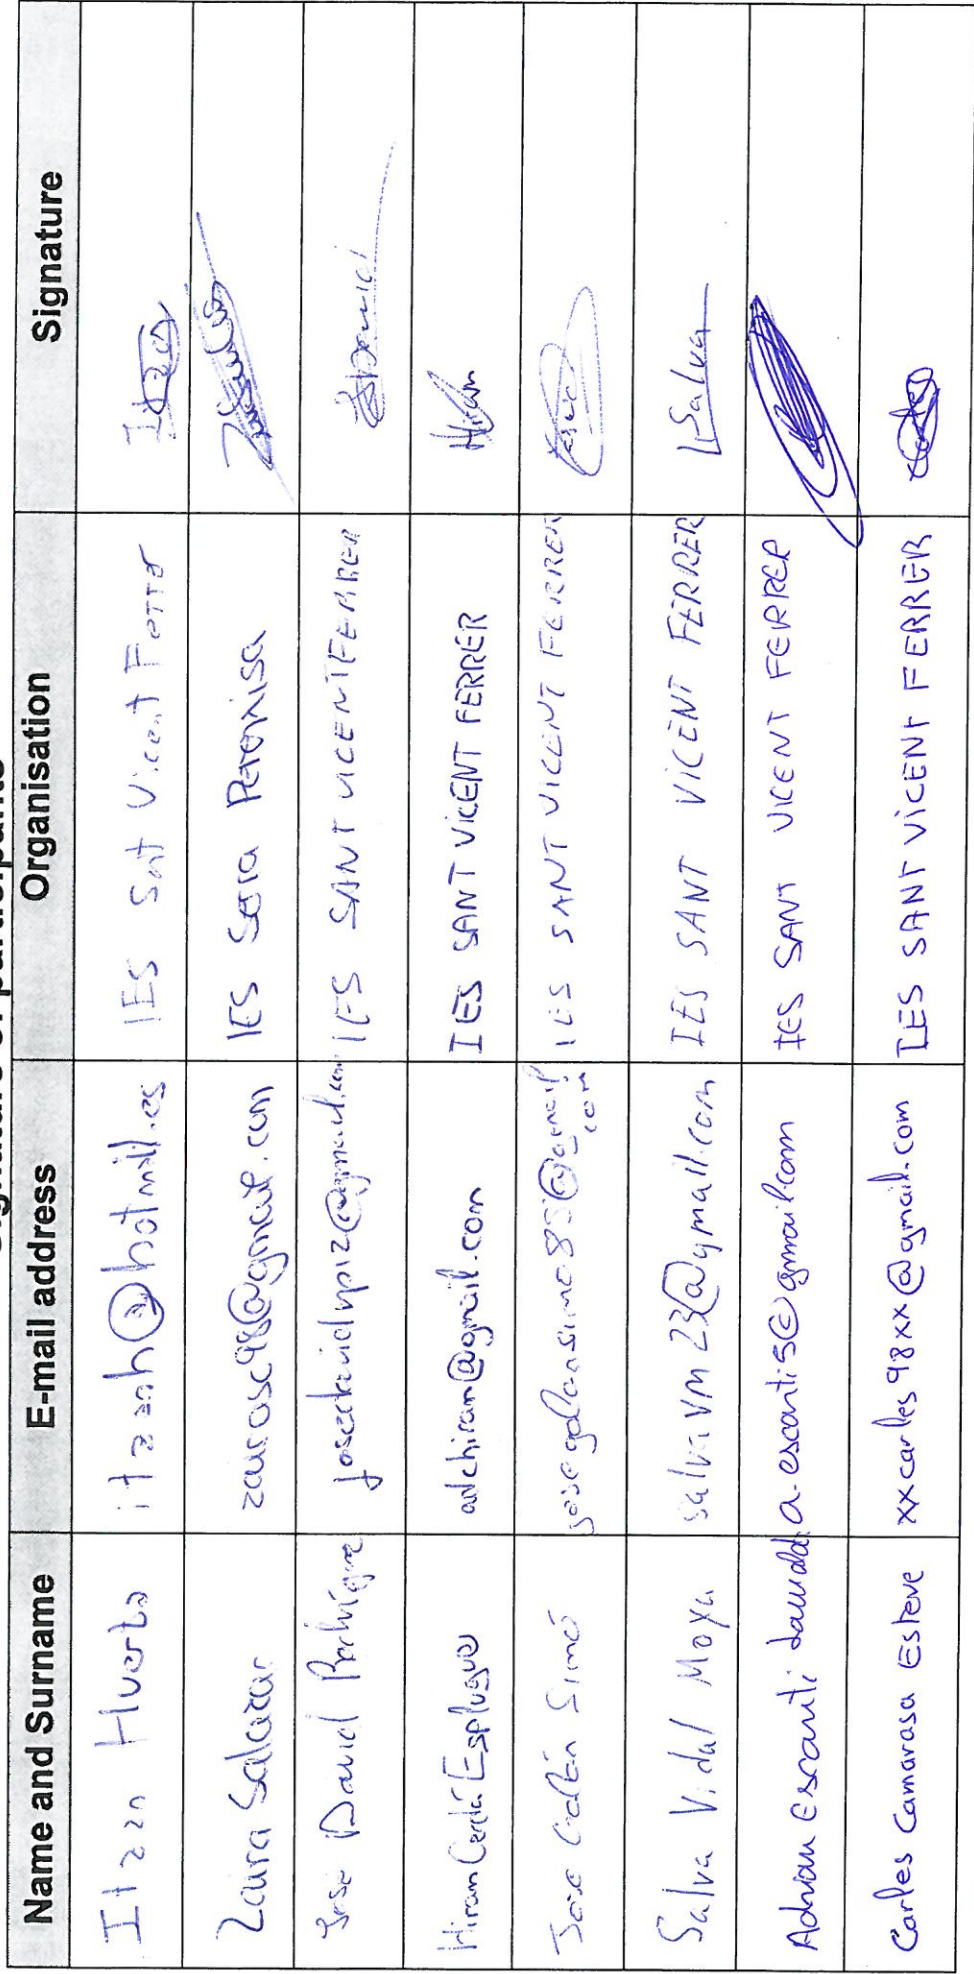 Signature of participants
Name and Surname E-mail address Organisation Signature
Itzan Huerta itzanh@hotmail.es IES Sant Vicent Ferrer Itzan
Zaira Salazar zairasc98@gmail.com IES Serra Perenxisa
Jose David Rodríguez josedavidvp12@gmail.com IES SANT VICENT FERRER David
Hiram Cerdá Esplugues adchiram@gmail.com IES SANT VICENT FERRER Hiram
Jose Galán Simó josegalansimo85@gmail.com IES SANT VICENT FERRER Jose
Salva Vidal Moya salvavm23@gmail.com IES SANT VICENT FERRER Salva
Adrian Escartí a.escarti5@gmail.com IES SANT VICENT FERRER
Carles Camarasa Esteve xxcarles98xx@gmail.com IES SANT VICENT FERRER Carles